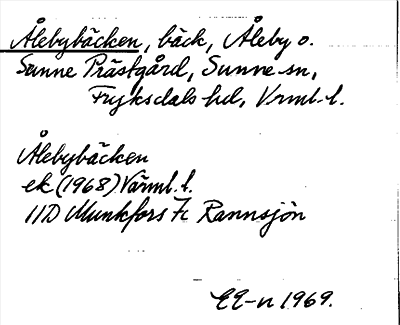 Ålebybäcken, bäck, Åleby o.
Sunne Prästgård, Sunne sn,
Fryksdals hd, Vrml. l.
Ålebybäcken
ek (1968) Värml. l.
11D Munkfors 7c Rannsjön
EE-n 1969.